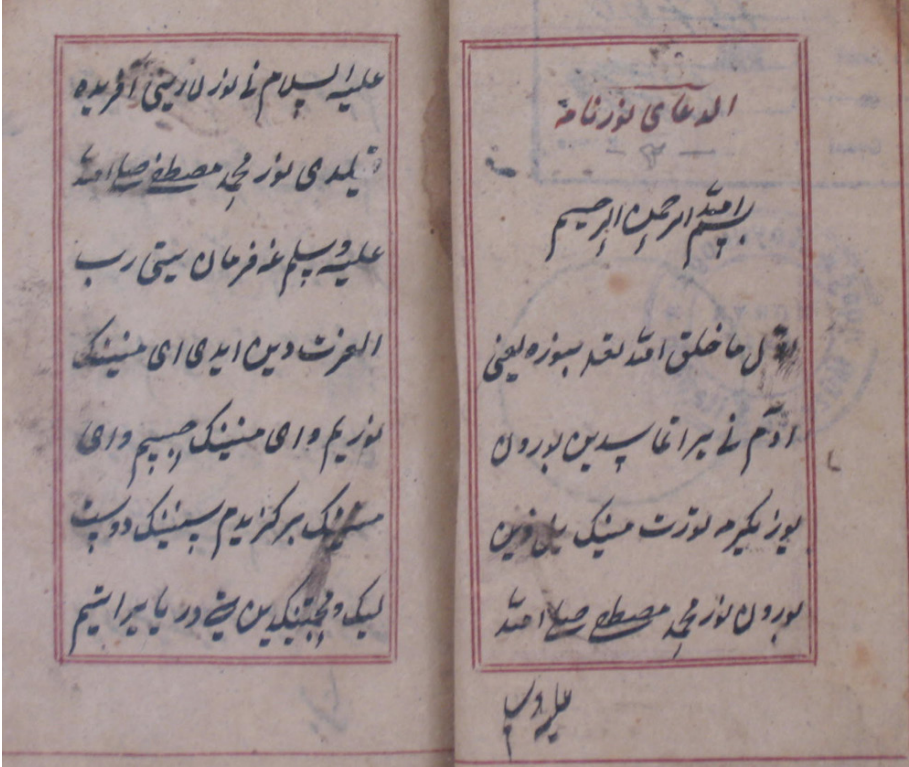 الدعای نورنامه
بسم الله الرحمن الرحیم
اول ما خلق الله لقد سوزه یعنی
آدم نی یراتماسدین بورون
یوز یکیرمه تورت مینک ییل دین
بورون نور محمد مصطفی صلی الله
علیه وسلم
علیه السلام نی نور لارینی آفریده
قیلدی نور محمد مصطفی صلی الله
علیه وسلم غه فرمان ییتی رب
العزت دین ایدی ای مینینک
نوریم وای مینینک حبیبیم وای
مینینک برکزیدم سینینک دوست
لیک و محبتینکدین یتی دریا یراتیم